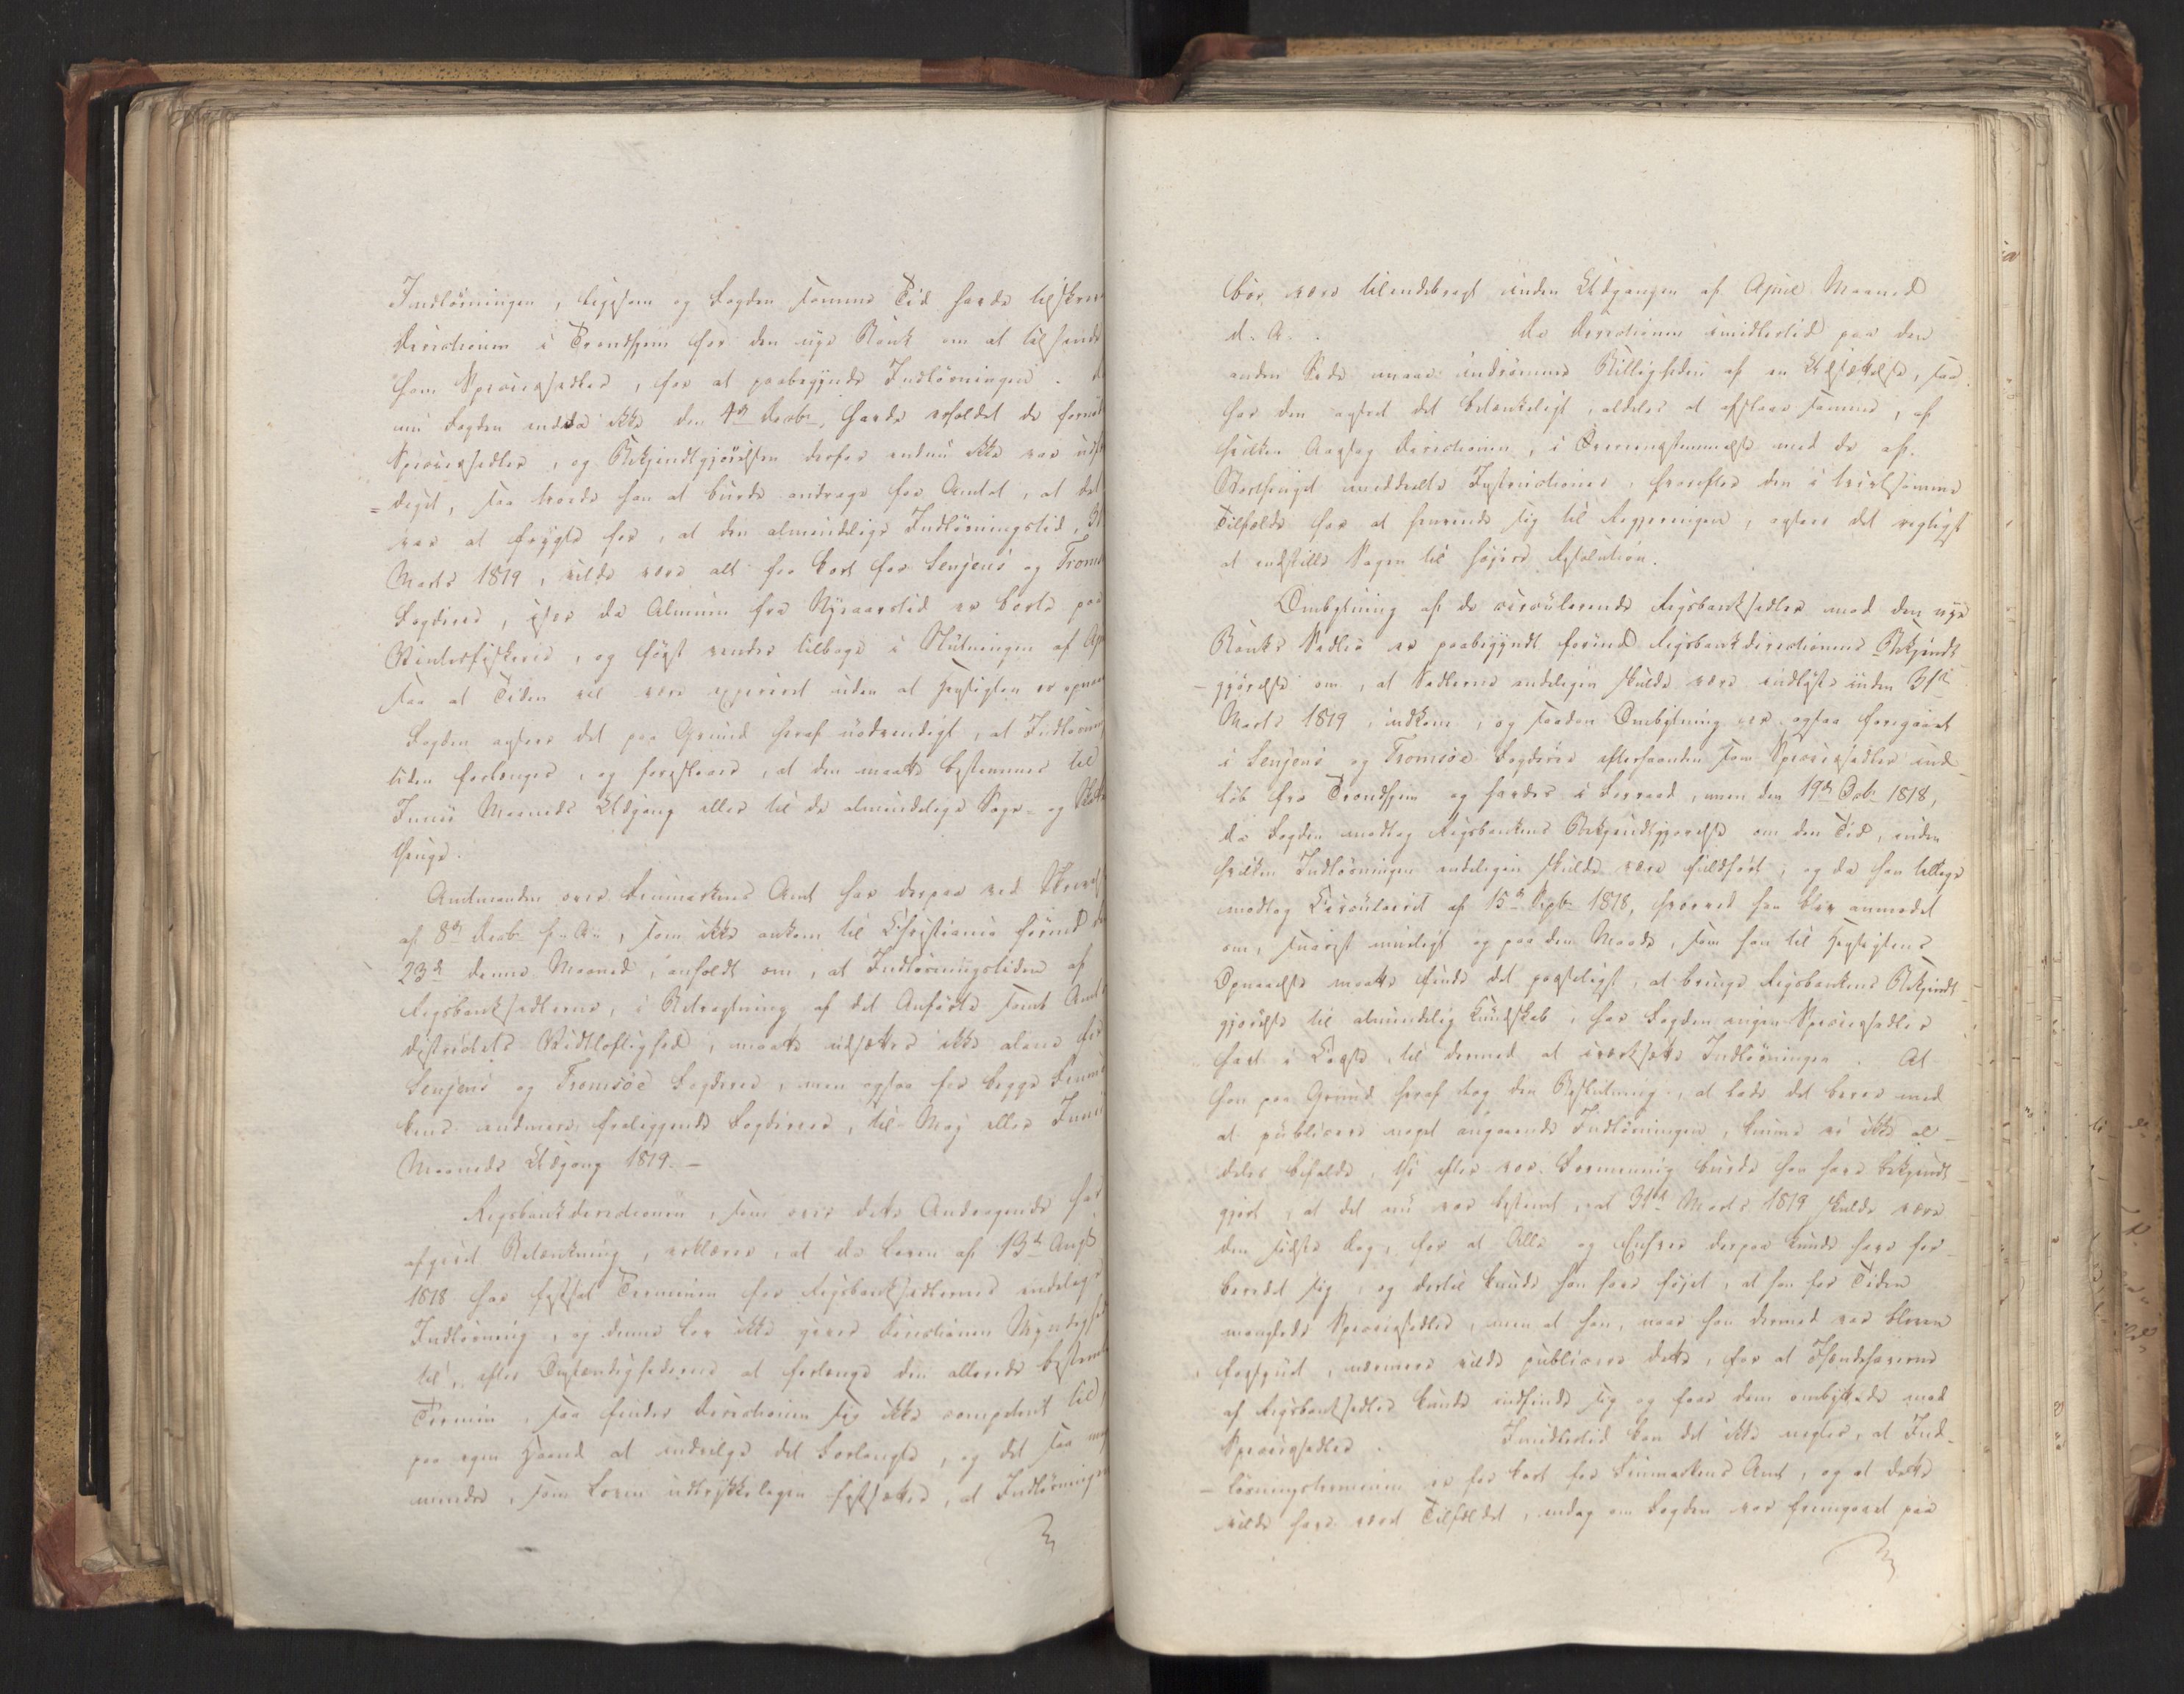 Indlösningen, ligesom og Fogden samme Tid havde tilskrev
Directionen i Trondhjem for den nye Bank om at tilsende
ham Speciessedler, for at paabegynde Indlösningen.
nu Fogden endda ikke den 4de Decbr. havde erholdet de
Speciessedler, og Bekjendtgjörelsen derfor endnu ikke var
= diget, saa troede han at burde andrage for Amtet, at det
var at frygte for, at den almindelige Indlösningstid, 31
Marts 1819, vilde være alt for kort for Senjens og Troms
Fogderie, især da Almuen fra Nyaarstid er borte paa
Vinterfiskerie, og först vender tilbage i Slutningen af Ap
saa at Tiden vil være exspireret uden at Hensigten er opnaa
Fogden anseer det paa Grund heraf nödvendigt, at Indlösnings
tiden forlænges, og foreslaaer, at den maatte bestemmes til
Junii Maaneds Udgang eller til de almindelige Sage- og Skatte
thinge.
Amtmanden over Finmarkens Amt har derpaa ved Skrivelse
af 8de Decbr. f. A., som ikke ankom til Christiania förend
23de denne Maaned, anholdt om, at Indlösningstiden af
Rigsbanksedlerne, i Betragtning af det Anförte samt Amts
districtets Vidtlöftighed, maatte udsættes ikke alene for
Senjens og Tromsöe Fogderie, men ogsaa for begge Finmar
kens endmere fraliggende Fogderier, til Maj eller Junii
Maaneds Udgang 1819. –
Rigsbankdirectionen, som over dette Andragende har
afgivet Betænkning, erklærer, at da Loven af 13de Aug
1818 har fastsat Terminen for Rigsbanksedlernes endelige
Indlösning, og denne Lov ikke giver Directionen Myndighed
til, efter Omstændighederne at forlænge den allerede bestemte
Termin, saa finder Directionen sig ikke competent til,
paa egen Haand at indvilge det Forlangte, og det saa meget
mindre, som Loven udtrykkeligen fastsætter, at Indlösningen
bör være tilendebragt inden Udgangen af April Maaned
d. A. Da Directionen imidlertid paa den
anden Side maae indrömme Billigheden af en Udsættelse, saa
har den anseet det betænkeligt, aldeles at afslaae samme, af
hvilken Aarsag Directionen, i Overensstemmelse med de af
Storthinget meddeelte Instructioner, hvorefter den i tvivlsomme
Tilfælde har at henvende sig til Regjeringen, anseer det rigtigst
at indstille Sagen til höjere Resolution.
Ombytning af de circulerende Rigsbanksedler mod den nye
Banks Sedler er paabegyndt forind Rigsbankdirectionens Bekjendt
– gjörelse om, at Sedlerne endeligen skulde være indlöste inden 31te
Marts 1819, indkom, og saadan Ombytning er ogsaa foregaaet
i Senjens og Tromsöe Fogderie efterhaanden som Speciessedler ind-
löb fra Trondhjem og havdes i Forraad, men den 19de Octb. 1818,
da Fogden modtog Rigsbankens Bekjendtgjörelse om den Tid, inden
hvilken Indlösningen endeligen skulde være fuldfört, og da han tillige
modtog Circulairet af 15de Septb. 1818, hvorved han blev anmodet
om, snarest mueligt og paa den Maade, som han til Hensigtens
Opnaaelse maatte finde det passeligst, at bringe Rigsbankens Bekjendt-
gjörelse til almindelig Kundskab, har Fogden ingen Speciessedler
havt i Casse, til dermed at iværksætte Indlösningen. At
han paa Grund heraf tog den Beslutning, at lade det beroe med
at publicere noget angaaende Indlösningen, kunne vi ikke al-
deles bifalde, thi efter vor Formening burde han have bekjendt-
gjort, at det nu var bestemt, at 31te Marts 1819 skulde være
den sidste Dag, for at Alle og Enhver derpaa kunde have for-
beredet sig, og dertil kunde han have föjet, at han for Tiden
manglede Speciessedler, men at han, naar han dermed var bleven
forsynet, nærmere vilde publicere dette, for at Ihændehaverne
af Rigsbanksedler kunde indfinde sig og faae dem ombyttede mod
Speciessedler. Imidlertid kan det ikke negtes, at Ind-
– lösningsterminen er for kort for Finmarkens Amt, og at dette
vilde have været Tilfældet, endog om Fogden var fremgaaet paa